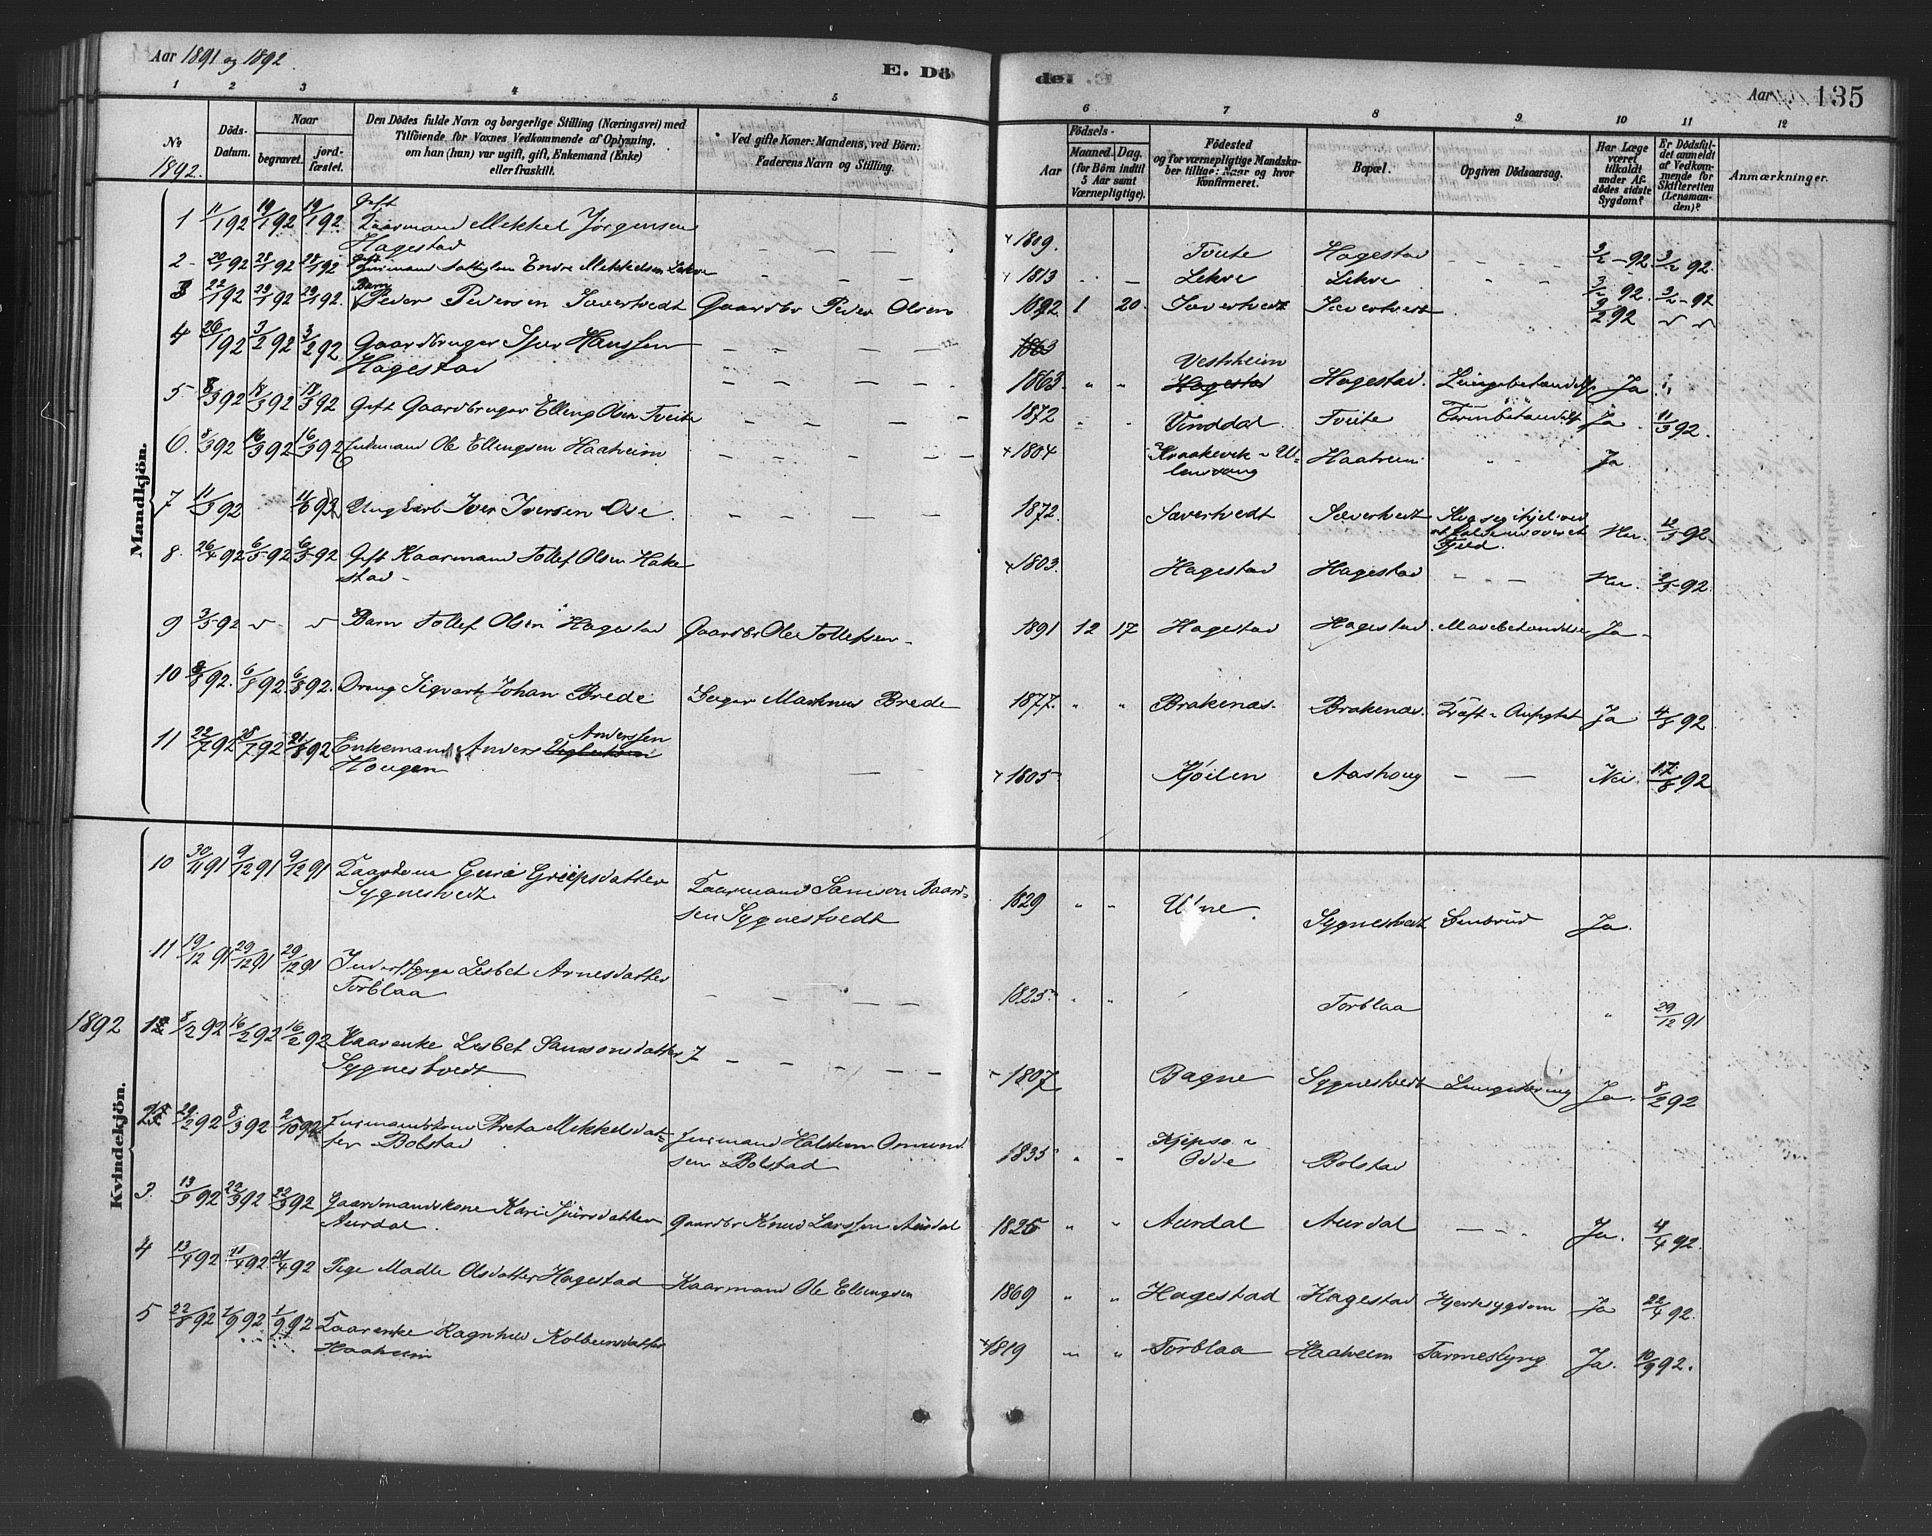 Aar 1891 og 1892.
E. Dö
de. 
Aar
135
1 2 3 4 5 6 7 8 9 10 11 12
No 1892.
Döds-Datum.
Naar
begravet.
jord-fæstet.
Den Dödes fulde Navn og borgerlige Stilling (Næringsvei) med
Tilföiende for Voxnes Vedkommende af Oplysning,
om han (hun) var ugift, gift, Enkemand (Enke)
eller fraskilt.
Ved gifte Koner: Mandens, ved Börn:
Faderens Navn og Stilling.
Födsels-
Aar
Maaned. Dag.
(for Börn indtil
5 Aar samt
Værnepligtige).
Födested
og for værnepligtige Mandska-
ber tillige: Naar og hvor
konfirmeret.
Bopæl.
Opgiven Dödsaarsag.
Har Læge
været
tilkaldt
under Af-
dödes sidste
Sygdom?
Er Dödsfal-
det anmeldt
af Vedkom-
mende for
Skifteretten
(Lensman-
den)?
Anmærkninger.
Mandkjön.
1 11/1 92 19/1 92 19/1 92 Gift Kaarmand Mikkel Jørgensen
Hagestad — — — 1809. Tveite Hagestad — — 2/2-92 2/2 92.
2 20/1 92 28/1 92 28/1 92 Gift Endre Mikkelsen Lekve — — 1813 Lekve Lekve
3 22/1 92 29/1 92 29/1 92. Barn Peder Pedersen Sævertvedt Gaardbr Peder Olsen 1892 1 20. Sævertvedt Sævertvedt
4 26/1 92 3/2 92 3/2 92 Gaardbruger Sjur Hanssen
Hagestad — — — 1863 1863. " " Vestrheim Hagestad Hagestad. Lungebetændelse Ja
5 8/3 92 18/3 92 18/3 92 Gift Gaardbruger Elling Olsen Tveite — — — 1872 Vinddal Tveite Ja 11/3 92.
6. 8/3 92 16/3 92 16/3 92 Enkemand Ole Ellingsen Haaheim — — — 1804 Kraakevik Ulensvang Haaheim " " Ja
7 11/3 92 Ungkarl Iver Iversen Ose. — — — 1872. Sævertvedt Sævertvedt Slog sig ihjel ved
at falde ud over et
Fjeld. Nei. 12/3 92.
8. 26/4 92 6/5 92 6/5 92 Gift Kaarmand Tollef Olsen Hake
stad — 1803. Hagestad Hagestad — — Nei 2/5 92.
9 3/5 92 Barn Tollef Olsen Hagestad Gaardbr Ole Tollefsen 1891 12 17 Hagestad Hagestad. Mavebetændelse Ja
10 92. 6/8 92. 6/8 92. Dreng Sigvart Johan Brede Markus Brede 1877. " " Brakenæs. Brakenæs. Ja 4/8 92.
11 22/7 92 28/7 92 21/8 92 Enkemand Anders Anderssen
Hougen — — 1805 Kjøilen Aashoug — — Nei. 17/8 92
Kvindekjön.
10 30/11 91 9/12 91 9/12 91 Kaarkone Guri Greipsdatter
Sygnestvedt Kaarmand Samson Baard-
sen Sygnestvedt 1829 " " Utne. Sygnestvedt Benbrud Ja.
11 19/12 91 29/12 91 29/12 91 Inderstpige Lisbet Arnesdatter
Torblaa — — — 1825 " " Torblaa " 29/12 91
1892
1 8/2 92 16/2 92 16/2 92 Kaarenke Lisbet Samsonsdatter
Sygnestvedt — — — 1807 Bagne Sygnestvedt Lungetæring Ja. 8/2 92
2 29/2 92 8/3 92 92 Husmandskone Brita Mikkelsdat-
ter Bolstad Husmand Halsten Osmund
sen Bolstad 1835 " " Odde Bolstad
3. 13/3 92 22/3 92 22/3 92 Gaardmandskone Kari Sjursdatter
Aurdal. Gaardbr Knud Larssen Aurdal 1825 " " Aurdal Aurdal — Ja. 4/4 92.
4 13/4 92 21/4 92. 21/4 92 Pige Madle Olsdatter Hagestad Kaarmand Ole Ellingsen 1869 " " Hagestad Hagestad Hjertesygdom Ja 22/4 92.
5 22/8 92 1/9 92 1/9 92 Kaarenke Ragnhild Kolbeinsdatter
Haaheim 1819 " " Torblaa Haaheim Tarmeslyng Ja. 10/9 92.